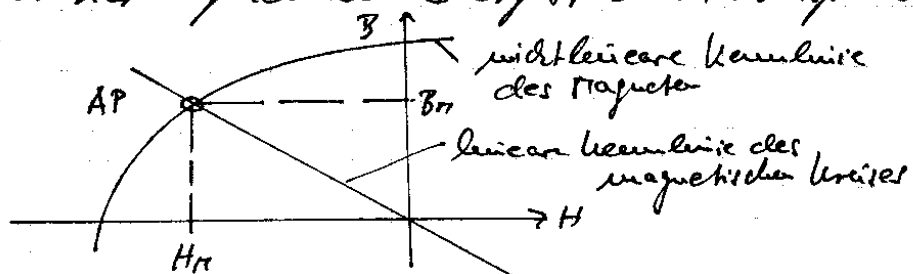 B
nichtlineare Kennlinie
des Magneten
AP
B_M
lineare Kennlinie des
magnetischen Kreises
H
H_M